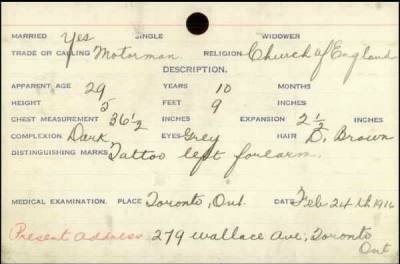 MARRIED Yes SINGLE WIDOWER
TRADE OR CALLING Motorman. RELIGION Church of England
DESCRIPTION.
APPARENT AGE 29 YEARS 10 MONTHS
HEIGHT 5 FEET 9 INCHES
CHEST MEASUREMENT 36 1/2 INCHES EXPANSION 2 1/2 INCHES
COMPLEXION Dark. EYES Grey HAIR D. Brown
DISTINGUISHING MARKS Tattoo left forearm.
MEDICAL EXAMINATION. PLACE Toronto, Ont. DATE Feb 24th 1916
Present Address 279 Wallace Ave, Toronto
Ont